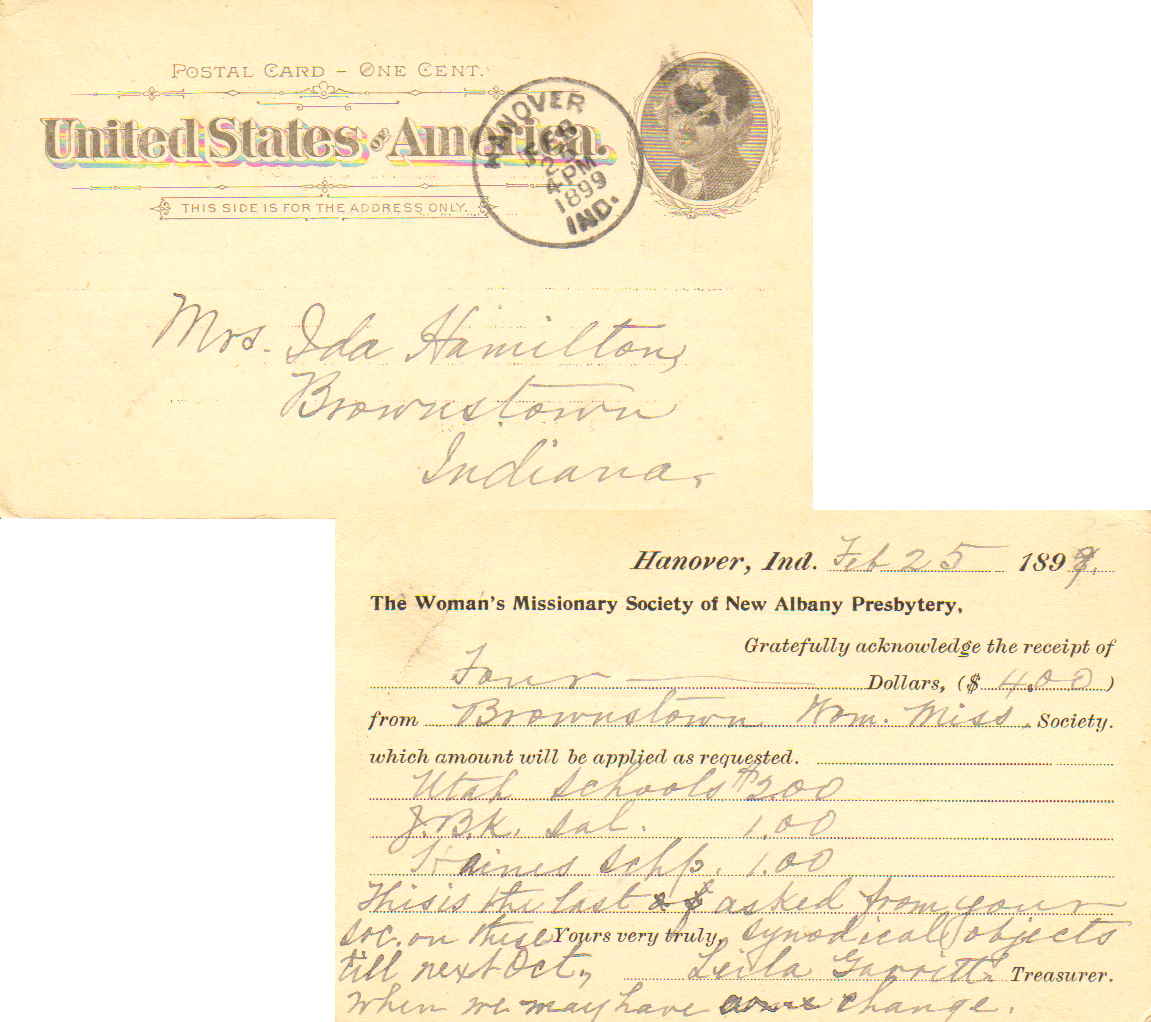 POSTAL CARD – ONE CENT.
United States of America.
THIS SIDE IS FOR THE ADDRESS ONLY.
HANOVER
FEB
25
4 PM
1899
IND.
Mrs. Ida Hamilton,
Brownstown
Indiana.
Hanover, Ind. Feb 25 1899.
The Woman's Missionary Society of New Albany Presbytery,
Gratefully acknowledge the receipt of
Four Dollars, ($ 4.00 )
from Brownstown Wom. Miss. Society.
which amount will be applied as requested.
Utah Schools $2.00
J.B.K. Sal. 1.00
Haines Schp. 1.00
This is the last asked from your
Soc. on these Yours very truly, synodical objects
till next Oct., Leila Garritt Treasurer.
When we may have change.